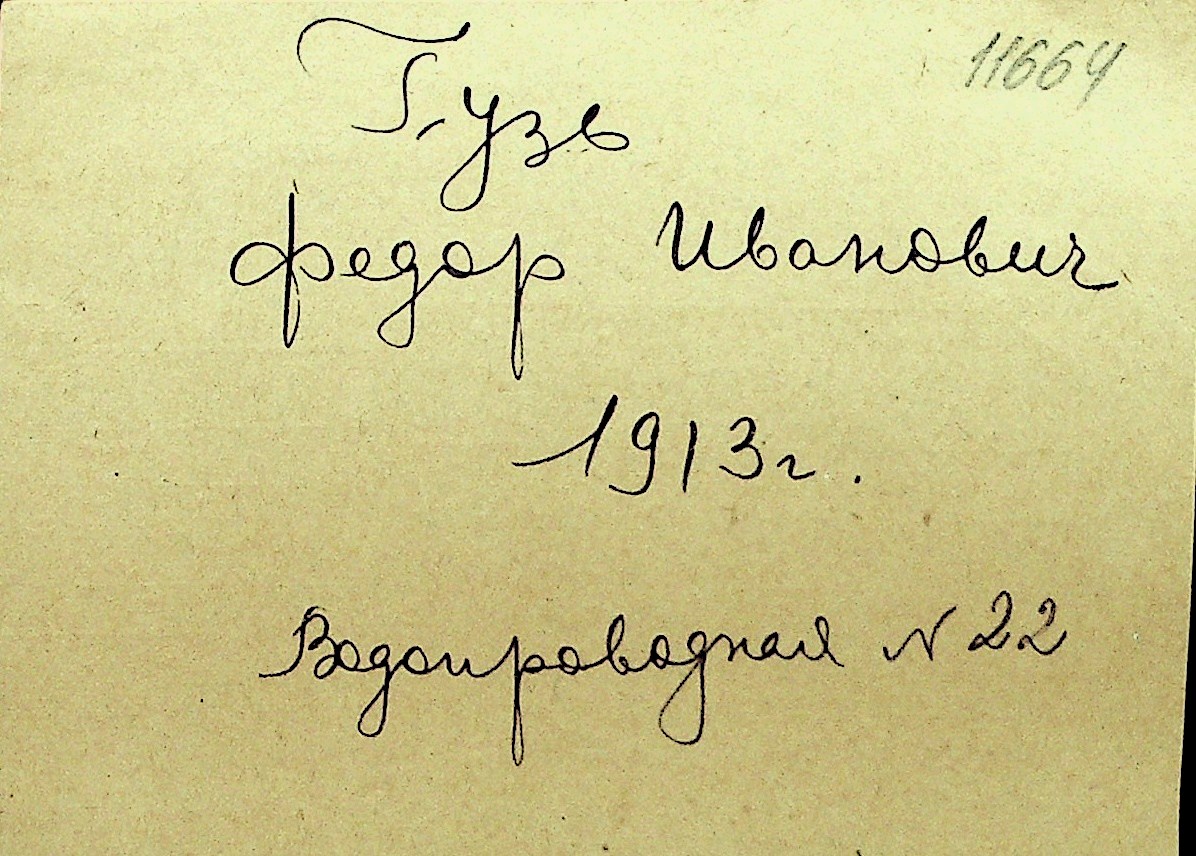 11664
Гузь
Федор Иванович
1913г.
Водопроводная N 22